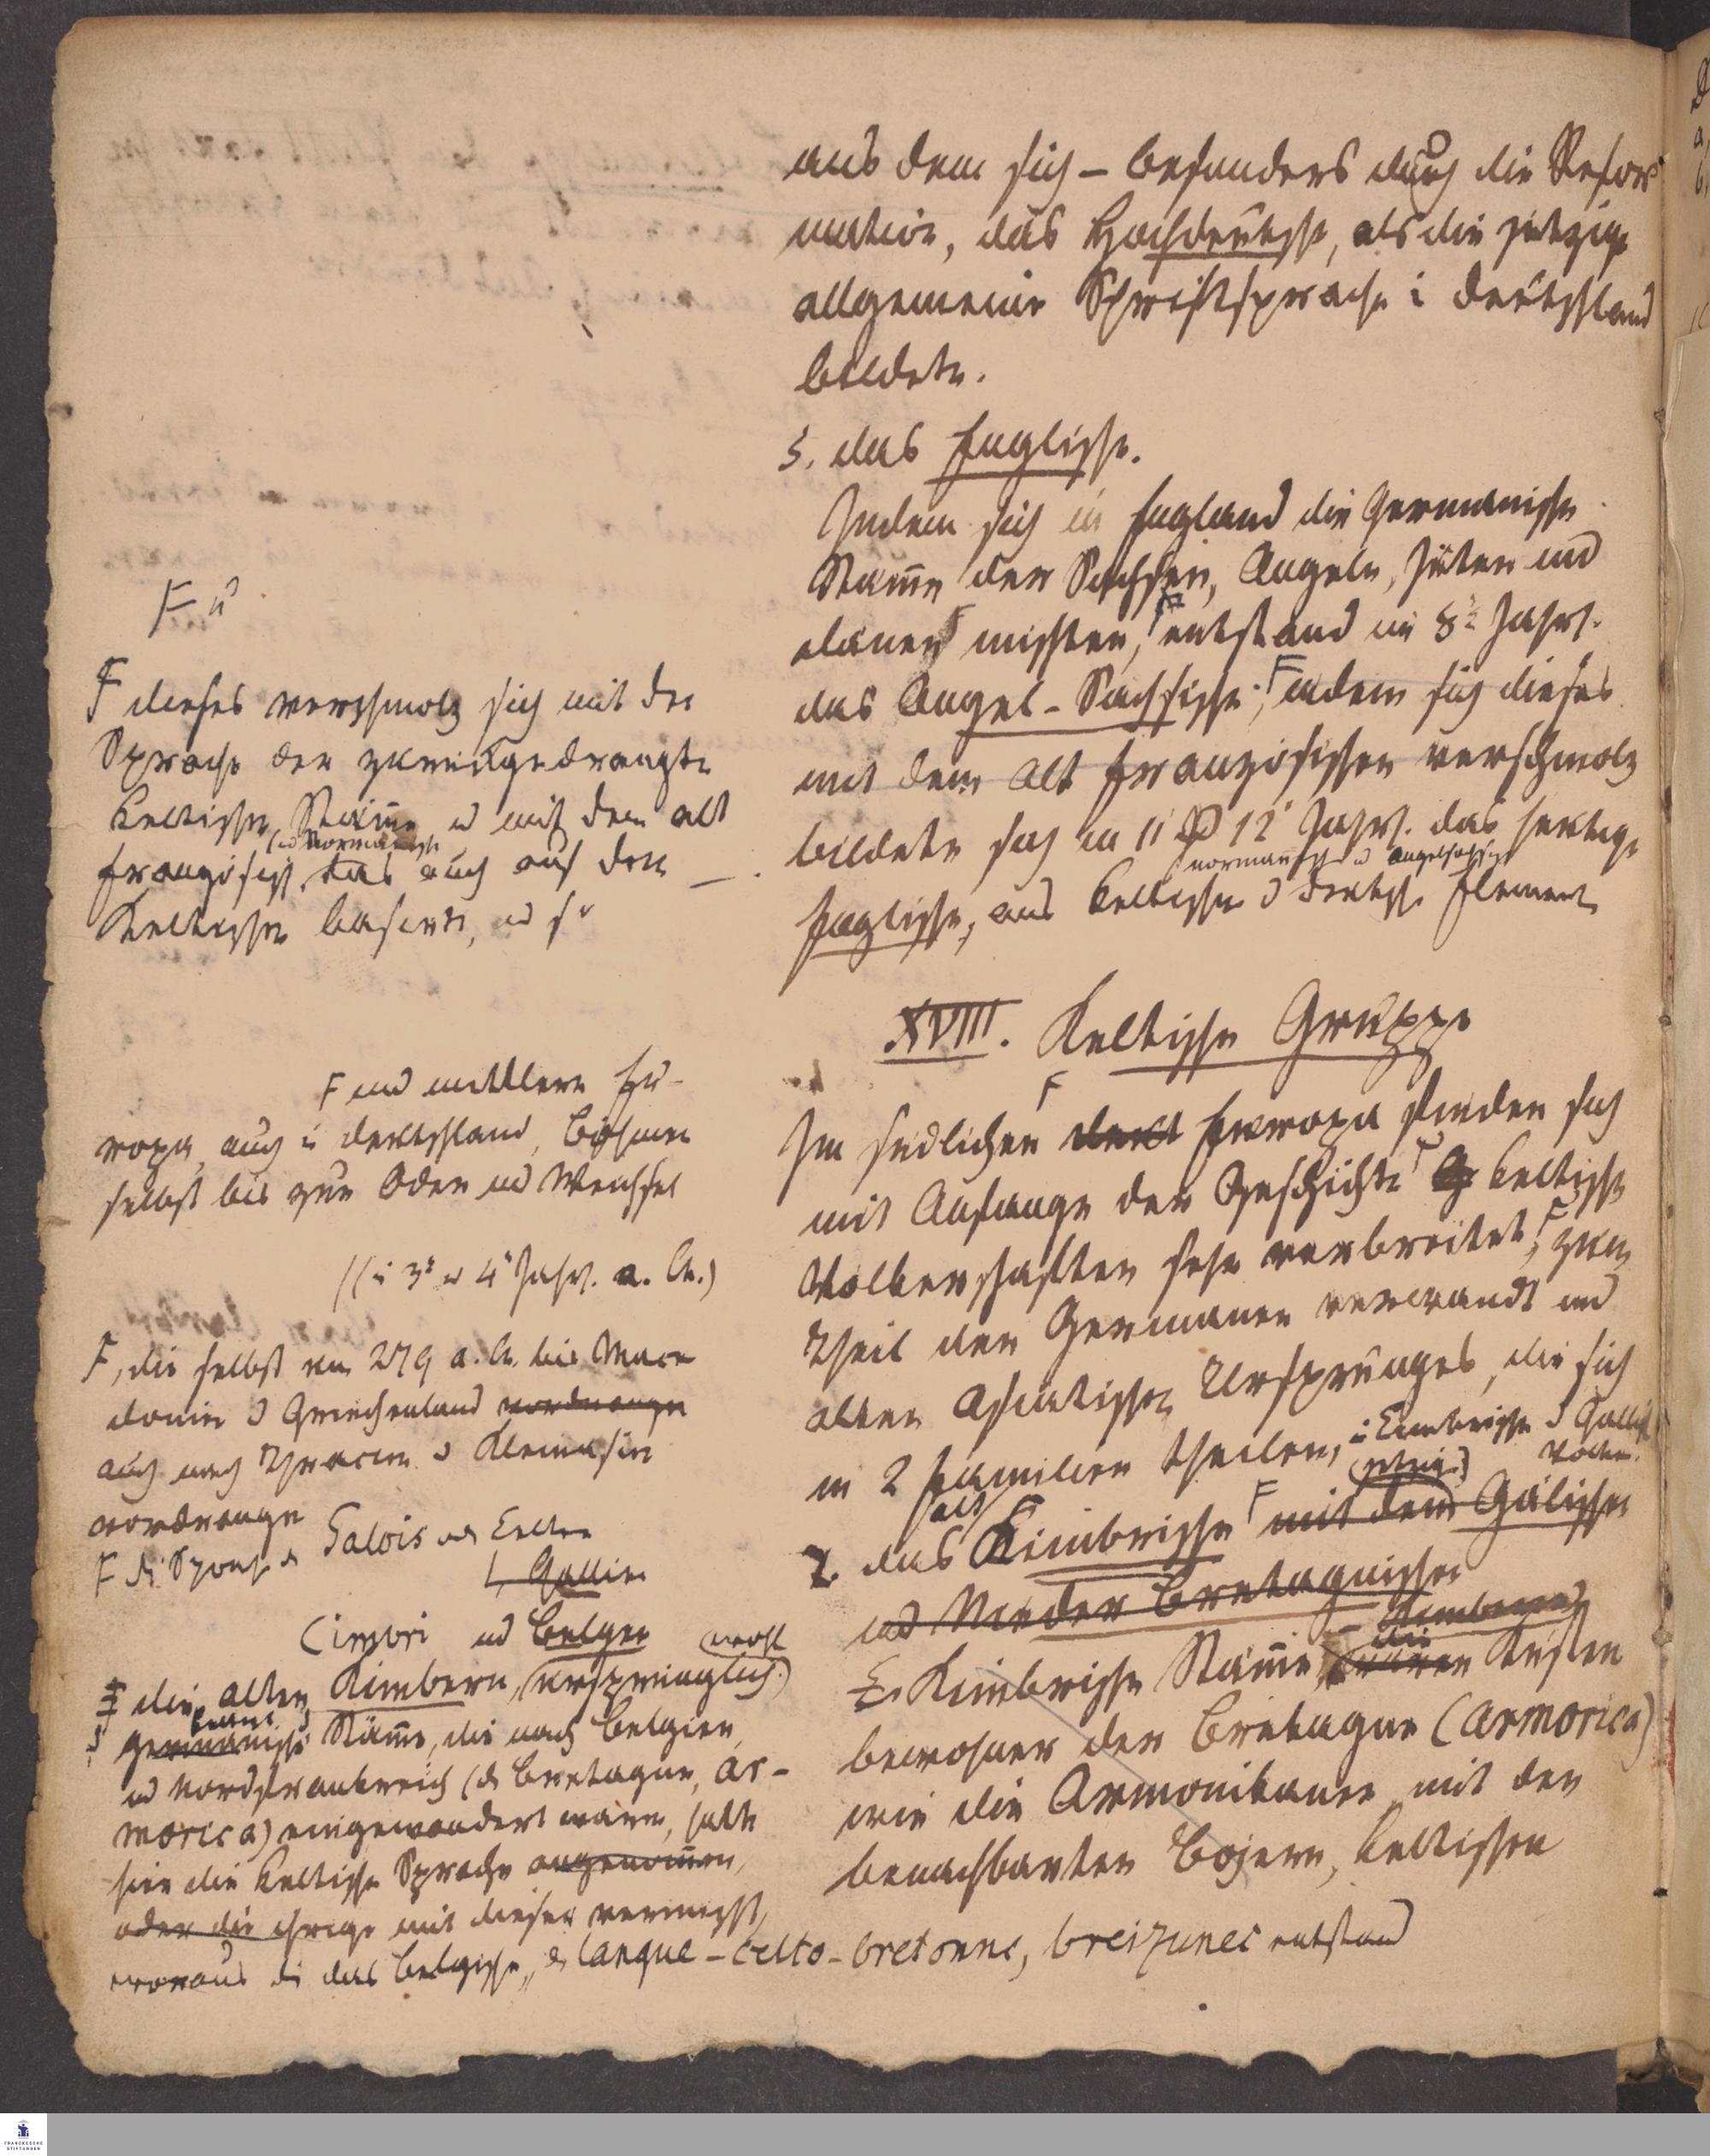 aus dem sich – besonders durch die Refor
mation, das Hochdeutsche, als die jetzige
allgemeine Schriftsprache i Deutschland
bildete.
3. das Englische.
Indem sich in England die Germanische
Stäme der Sachsen, Angeln, Jüten und
Dänen mischten, entstand im 8t Jahrh.
das Angel-Sachsische; F indem sich dieses
mit dem Alt Französischen verschmolz
bildete sich im 11 12 Jahrh. das heutige
normannisch u angelsachsisch
Englische, aus keltischen deutsch. Element
XVIII. Keltische Gruppe
F
Im südlichen Europa finden sich
mit Anfange der Geschichte F keltische
Völkerschaften sehr verbreitet, F zum
Theil den Germanen verwandt und
alten Asiatischen Ursprunges, die sich
in 2 Familien theilen,
das Kimbrische F mit dem Gälischen
und Nieder Bretagnischen
Kimbrische Stäme, Küsten
bewohner der Bretagne (Armorica)
wie die Armorikaner mit den
benachbarten Bojern, keltischen
F u
F dieses verschmolz sich mit der
Sprache der zurückgedrängte
keltische Stäme u mit dem alt
(u Normannisch
französisch, das auch auf dem
Keltischen basirte, u so
F und mittlern Eu-
ropa, auch i Deutschland, Böhmen
selbst bis zur Oder und Weichsel
(i 3t u 4t Jahrh. a. Ch.)
F, die selbst um 279 a. Ch. bis Mace
donien Griechenland vordrangen
auch nach Thracien Kleinasien
vordrangen
F di Sprache Galois Celten
Gallier
Cimbri und Belger
F die alten Kimbern, (wohl ursprünglich)
germanische Stäme, die nach Belgien,
und Nordfrankreich (d. Bretagne, Ar-
morica) eingewandert waren, hatte
hier die keltische Sprache angenomen,
oder die ihrige mit dieser vermischt,
woraus das Belgische, Langue-celto-bretonne, breizunec entstand
FRANCKESCHE
STIFTUNGEN